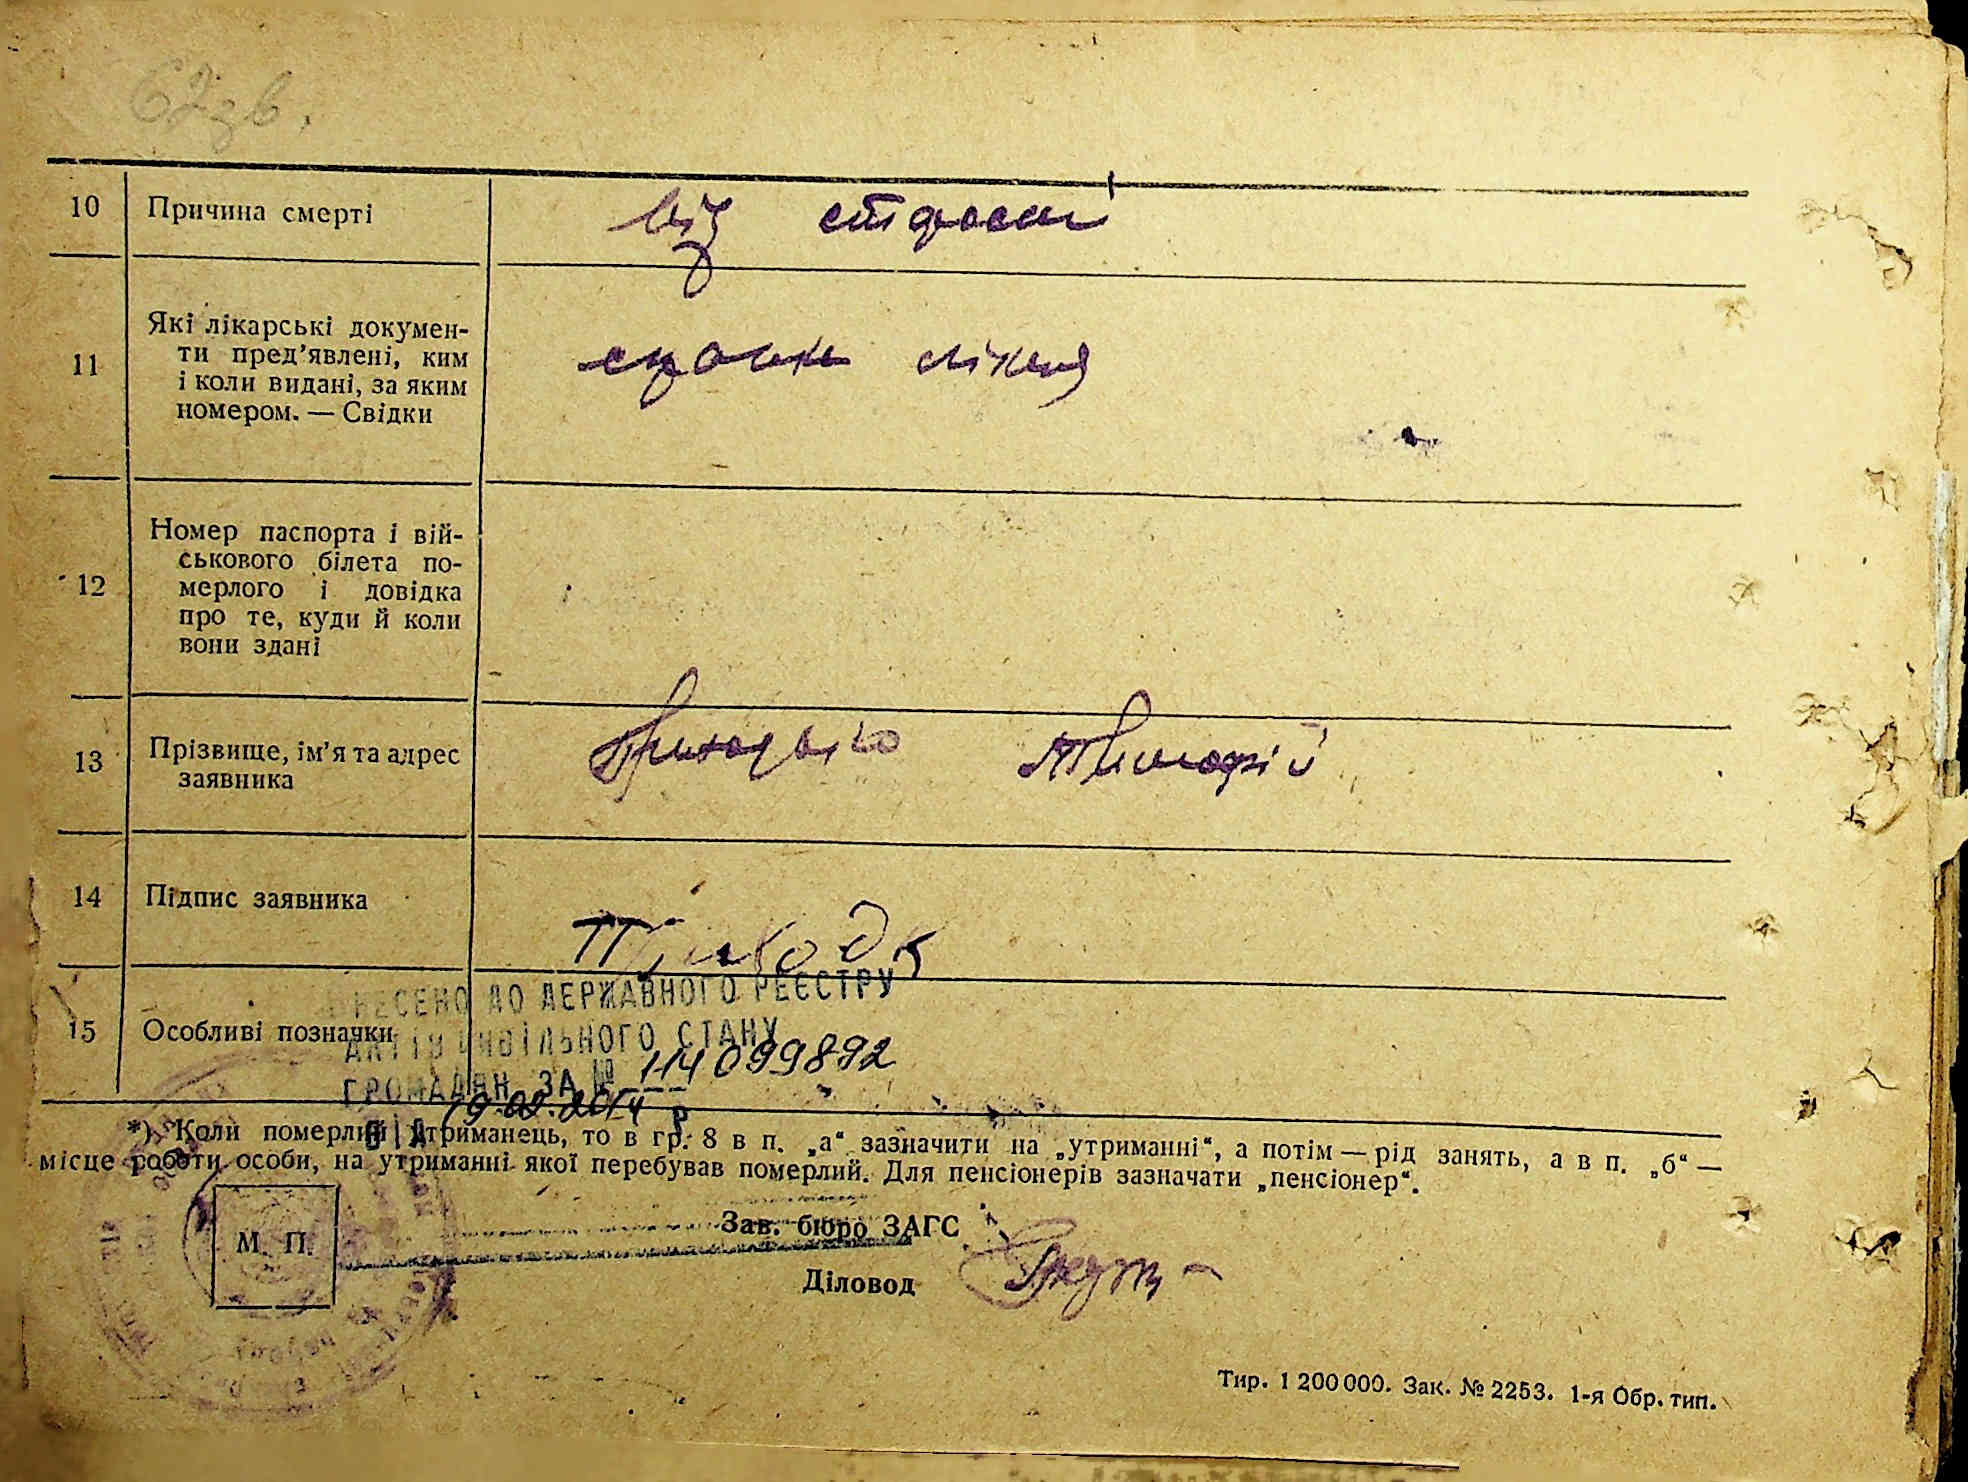 62зв.
10 Причина смерті від старості
11 Які лікарські докумен-
ти пред’явлені, ким
і коли видані, за яким
номером. — Свідки
12 Номер паспорта і вій-
ськового білета по-
мерлого і довідка
про те, куди й коли
вони здані
13 Прізвище, ім’я та адрес Приходько Тимофій
заявника
14 Підпис заявника Приходь
ВНЕСЕНО ДО ДЕРЖАВНОГО РЕЄСТРУ
15 Особливі позначки
АКТІВ ЦИВІЛЬНОГО СТАНУ
ГРОМАДЯН ЗА № 114099892
ВІД 19.02.2014 р
*) Коли померлий утриманець, то в гр. 8 в п. „а“ зазначити на „утриманні“, а потім — рід занять, а в п. „б“ —
місце роботи особи, на утриманні якої перебував померлий. Для пенсіонерів зазначати „пенсіонер“.
М. П. Зав. бюро ЗАГС
Діловод
Тир. 1 200 000. Зак. № 2253. 1-я Обр. тип.